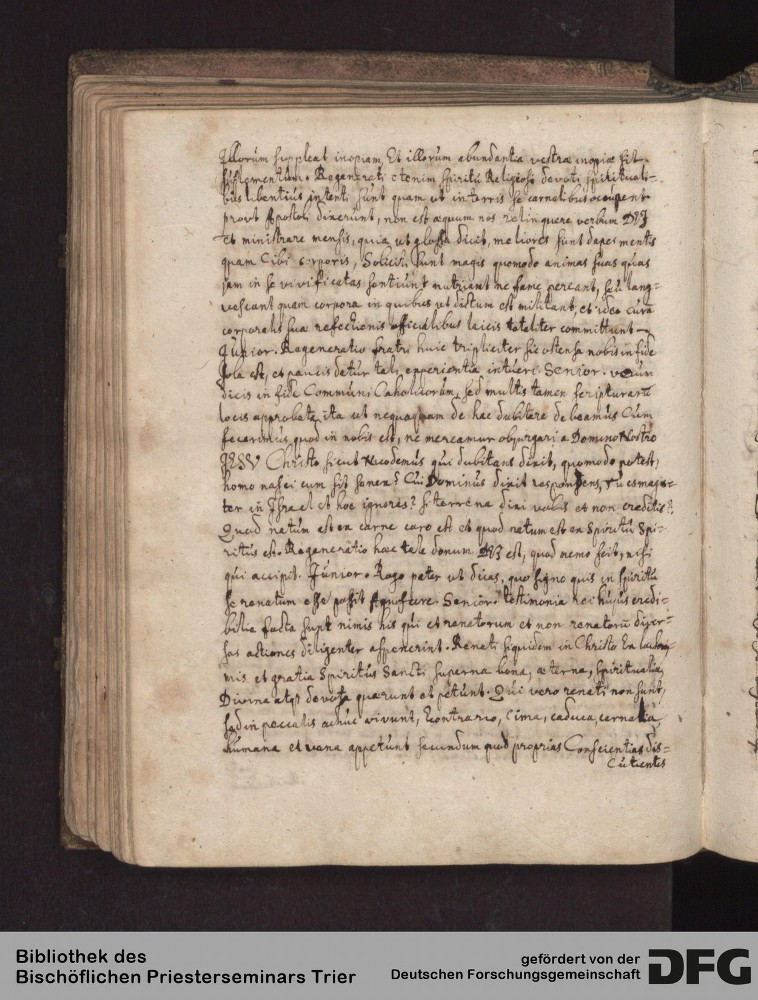 Illorum suppleat inopiam, Et illorum abundantia vestrae inopiae sit
Regenerati etenim spiritu Religiosi devoti spirituali-
bus libentius intenti sunt quam ut in terris se carnalibus occupent
prout Apostoli dixerunt, non est aequum nos relinquere verbum DEI
et ministrare mensis, quia ut glossa dicit, meliores sunt dapes mentis
quam Cibi corporis, Soliciti sunt magis quomodo animas suas quas
jam in se vivificatas sentiunt nutriant ne fame pereant, seu lang-
vescant quam corpora in quibus ut dictum est militant, et ideo cura
corporalis suae refectionis officialibus laicis totaliter committunt
Junior. Regeneratio fratri huic tripliciter sic ostensa nobis in fide
sola est, et paucis detur tali experientia intueri. Senior. verum
dicis in fide Communi Catholicorum, sed multis tamen scripturarum
locis approbata ita ut nequaquam de hac dubitare debeamus Cum
fecerimus quod in nobis est, ne mereamur objurgari a Domino Nostro
JESU Christo sicut Nicodemus qui dubitans dixit, quomodo potest
homo nasci cum sit senex? Cui Dominus dixit respondens, Tu es magis-
ter in Israel et hoc ignoras? si terrena dixi vobis et non creditis?
Quod natum est ex carne caro est et quod natum est ex Spiritu Spi-
ritus est. Regeneratio haec tale donum DEI est, quod nemo scit, nisi
qui accipit. Junior. Rogo pater ut dicas, quo signo quis in spiritu
se renatum esse possit agnoscere. Senior. testimonia rei hujus credi-
bilia facta sunt nimis his qui et renatorum et non renatorum diver-
sas actiones diligenter aspexerint. Renati siquidem in Christo Ex
et gratia Spiritus Sancti superna bona, aeterna, spiritualia,
Divina atque devota quaerunt et petunt. Qui vero renati non sunt,
sed in peccatis adhuc vivunt, Econtrario, ima, caduca, carnalia,
humana et vana appetunt secundum quod proprias Conscientias dis-
cutientes
Bibliothek des
Bischöflichen Priesterseminars Trier
gefördert von der
Deutschen Forschungsgemeinschaft
DFG